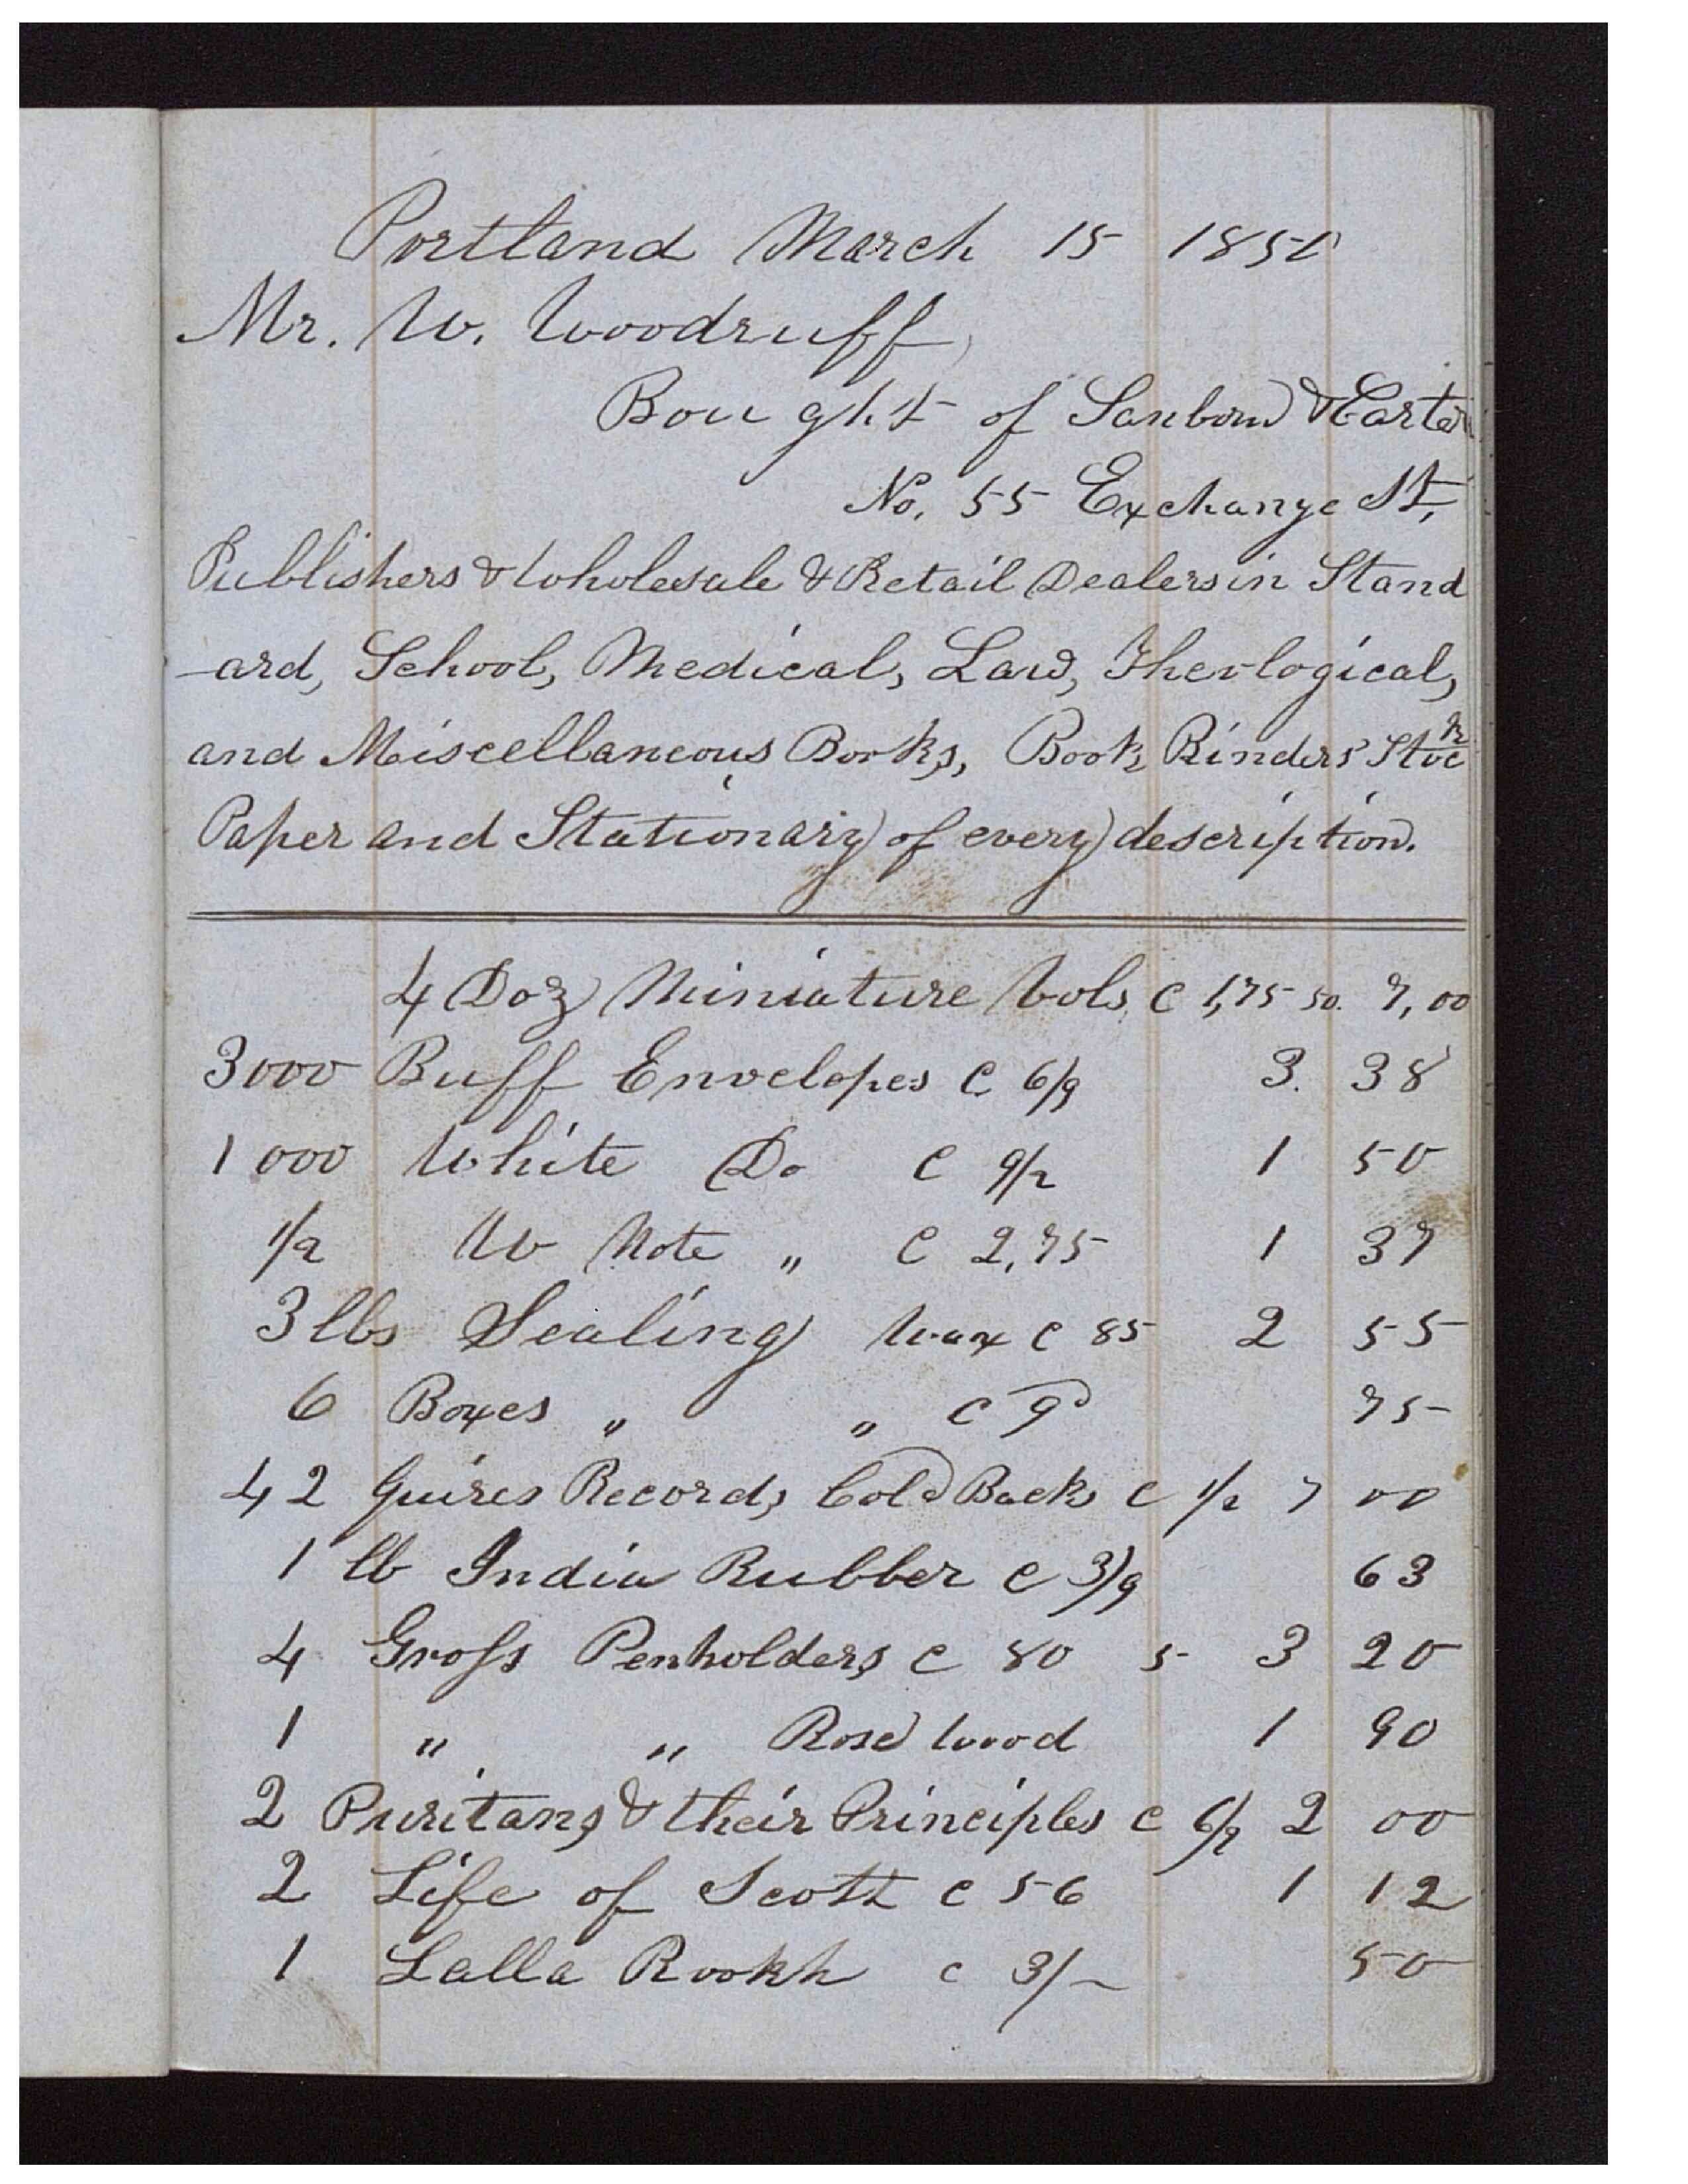 Portland March 15 1850
Mr. W. Woodruff,
Bought of Sanborn & Carter
No. 55 Exchange St,
Publishers & Wholesale & Retail Dealers in Stand
-ard, School, Medical, Law, Theological,
and Miscellaneous Books, Book Binders' Stock
Paper and Stationary of every description.
4 Doz Miniature Vols. c 1,75 50. 7,00
3000 Buff Envelopes c 6/9 3. 38
1000 White Do c 9/2 1 50
1/2 W Note " c 2,75 1 37
3 lbs Sealing Wax c 85 2 55
6 Boxes " " c 9d 75
42 Quires Records, Cold Backs c 1/2 7 00
1 lb India Rubber c 3/9 63
4 Gross Penholders c 80 5 3 20
1 " " Rose wood 1 90
2 Puritans & their Principles c 6/9 2 00
2 Life of Scott c 56 1 12
1 Lalla Rookh c 3/- 50